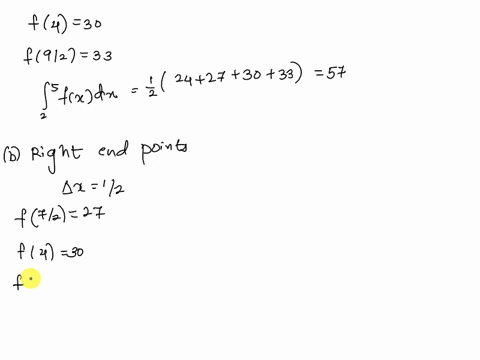 f(4) = 30
f(9/2) = 33
∫₂⁵ f(x)dx = 1/2 ( 24+27+30+33 ) = 57
(b) Right end points
Δx = 1/2
f(7/2) = 27
f(4) = 30
f